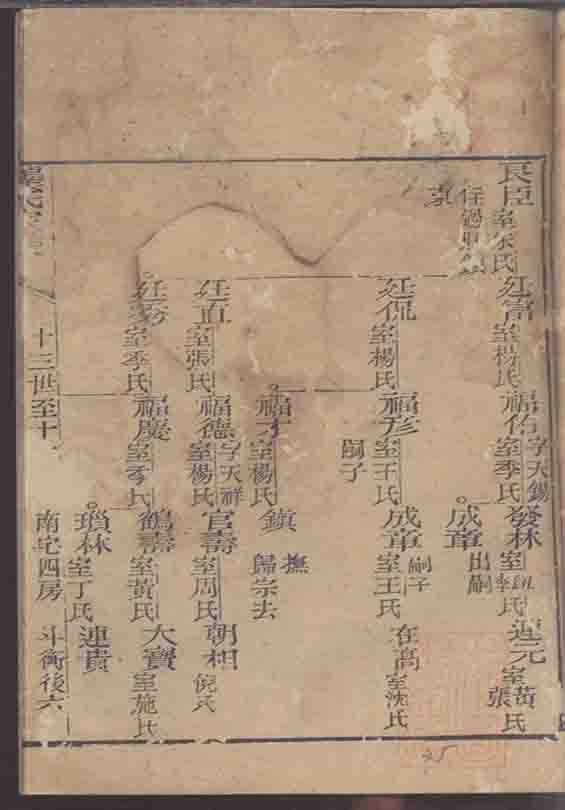 良臣 室余氏
廷富 室楊氏
福佑 字天錫 室季氏
發林 室李氏
運元 室黃氏 張
成章 出嗣
廷侃 室楊氏
福彥 室王氏 嗣子
成章 嗣子 室王氏
在高 室沈氏
福才 室楊氏
鎮 撫 歸宗去
廷直 室張氏
福德 字天祥 室楊氏
官壽 室周氏
朝相 倪氏
室季氏
福慶 室季氏
鶴壽 室黃氏
大寶 室施氏
瓊林 室丁氏
連貴
十三世至十
南宅四房 斗衡後六
25